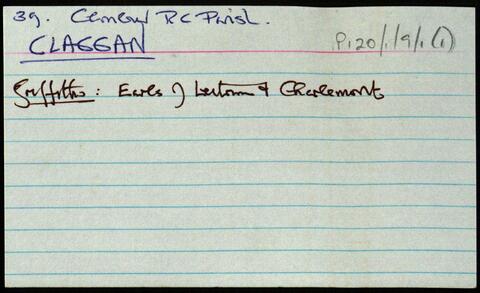 39. Clonleigh R C Parish.
CLAGGAN
P.120/1/9/1(1)
Griffiths: Earls of Leitrim & Charlemont